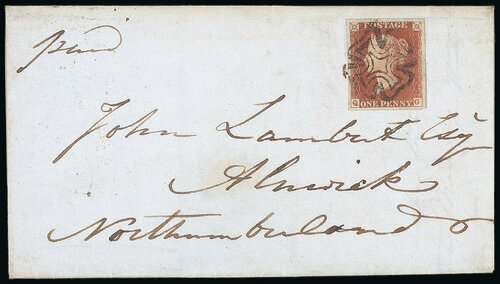 paid
POSTAGE
ONE PENNY
John Lambert Esq
Alnwick
Northumberland